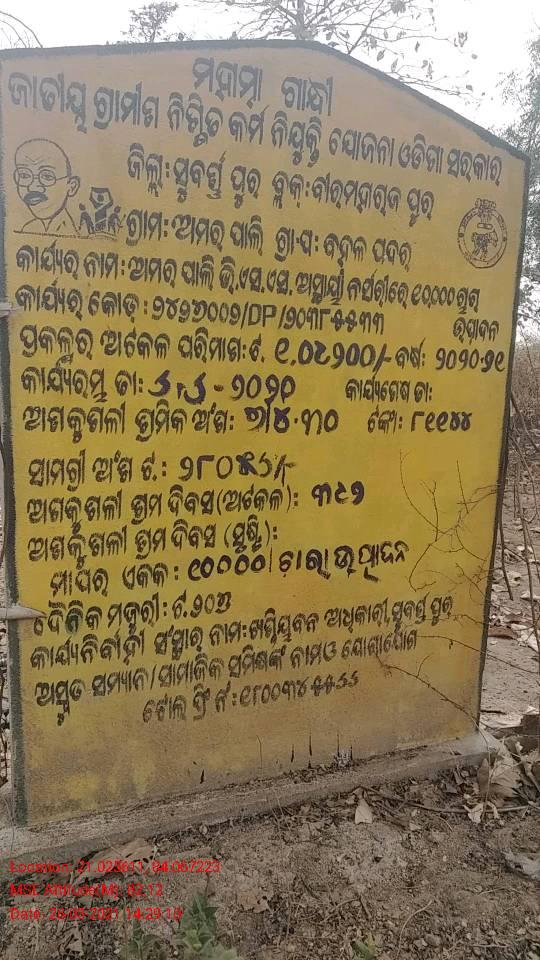 ମହାତ୍ମା ଗାନ୍ଧୀ
ଜାତୀୟ ଗ୍ରାମୀଣ ନିଶ୍ଚିତ କର୍ମ ନିଯୁକ୍ତି ଯୋଜନା ଓଡିଶା ସରକାର
ଜିଲ୍ଲା: ସୁବର୍ଣ୍ଣ ପୁର ବ୍ଲକ: ବୀରମହାରାଜ ପୁର
ଗ୍ରାମ: ଅମର ପାଲି ଗ୍ରା-ପ: ବହୁଳ ପଦର
କାର୍ଯ୍ୟର ନାମ: ଅମର ପାଲି ଭି.ଏସ.ଏସ. ଅସ୍ଥାୟୀ ନର୍ସରୀରେ ୧୦,୦୦୦ ଚାରା
ଉତ୍ପାଦନ
କାର୍ଯ୍ୟର କୋଡ଼: ୨୪୧୬୦୦୨/DP/୨୦୩୮୫୫୩୩
ପ୍ରକଳ୍ପର ଅଟକଳ ପରିମାଣ: ଟ. ୧.୦୯୨୦୦/- ବର୍ଷ: ୨୦୨୦-୨୧
କାର୍ଯ୍ୟାରମ୍ଭ ତା: ୨୦୨୧ କାର୍ଯ୍ୟଶେଷ ତା:
ଅଣକୁଶଳୀ ଶ୍ରମିକ ଅଂଶ: ଟଙ୍କା: ୮୧୧୪୪
ସାମଗ୍ରୀ ଅଂଶ ଟ.:
ଅଣକୁଶଳୀ ଶ୍ରମ ଦିବସ (ଅଟକଳ): ୩୯୨
ଅଣକୁଶଳୀ ଶ୍ରମ ଦିବସ (ସୃଷ୍ଟି):
ମାପର ଏକକ: ୧୦୦୦୦। ଚାରା ଉତ୍ପାଦନ
ଦୈନିକ ମଜୁରୀ: ଟ.୨୦୭
କାର୍ଯ୍ୟନିର୍ବାହୀ ସଂସ୍ଥାର ନାମ: ଅଧିକାରୀ, ସୁବର୍ଣ୍ଣ ପୁର
ସାମାଜିକ ନାମ ଓ ଯୋଗାଯୋଗ
ଟୋଲ ଫ୍ରି ନଂ: ୧୮୦୦୩୪୫୫
Location: 21.025611, 84.067223
MSL Altitude(M): 82.12
Date: 26-05-2021 14:29:18